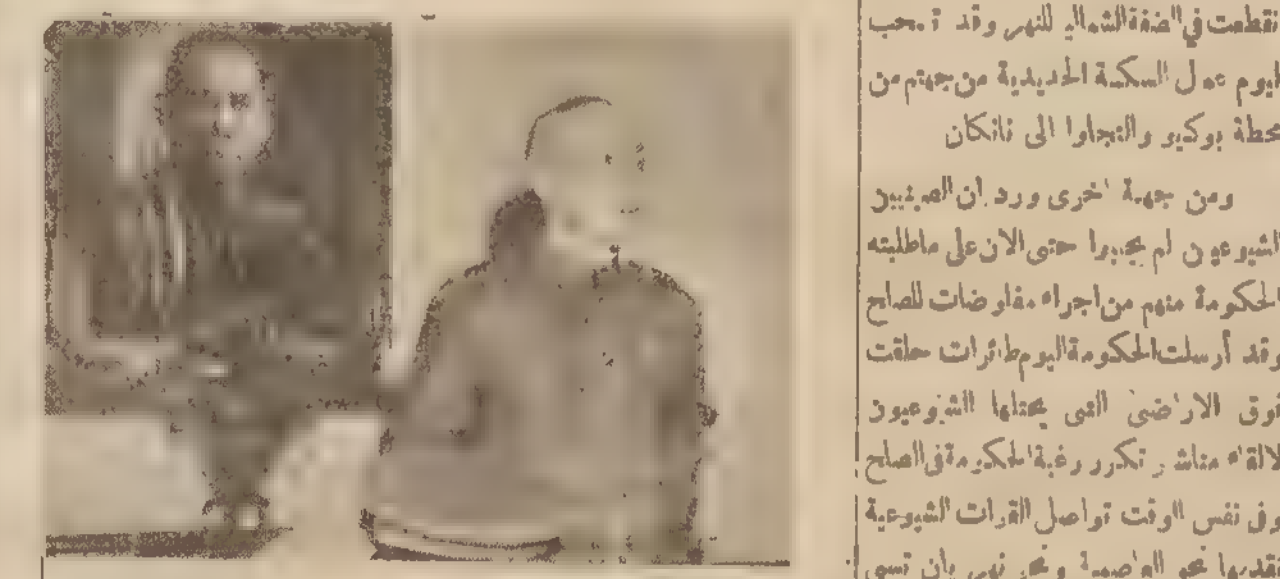 نقطعت في الضفة الشمالية للنهر وقد
اليوم عمل السكة الحديدية من جهتهم من
محطة بوكيو والتجاوا الى نانكان
ومن جهة اخرى ورد ان الصينيين
الشيوعيين لم يجيبوا حتى الان على ماطلبته
الحكومة منهم من اجراء مفاوضات للصلح
وقد أرسلت الحكومة اليوم طائرات حلقت
فوق الاراضى التى يحتلها الشيوعيون
لالقاء مناشر تكرر رغبة الحكومة فى الصلح
وفى نفس الوقت تواصل القوات الشيوعية
تقدمها نحو العاصمة بان